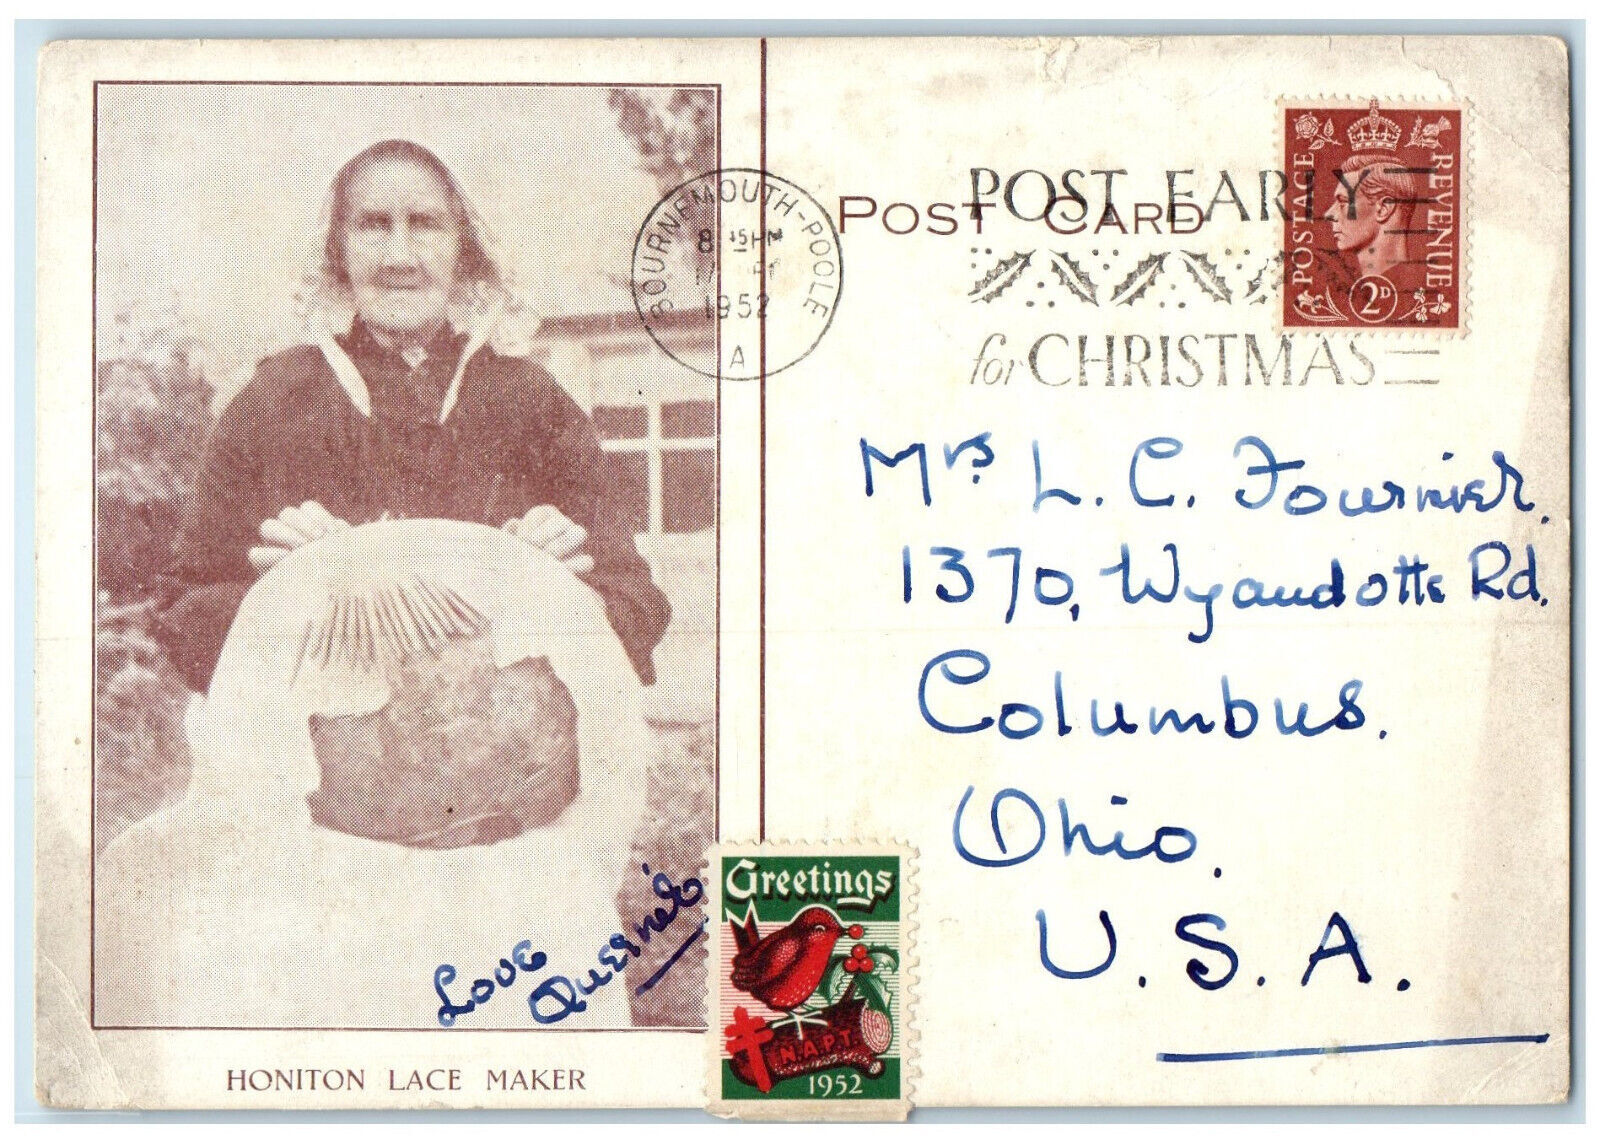 POST CARD
BOURNEMOUTH-POOLE
8 45 PM
1952
A
POST EARLY
for CHRISTMAS
POSTAGE
REVENUE
2D
Mrs L. C. Fournier.
1370, Wyandotte Rd.
Columbus.
Ohio.
U.S.A.
Love
Greetings
N.A.P.T.
1952
HONITON LACE MAKER